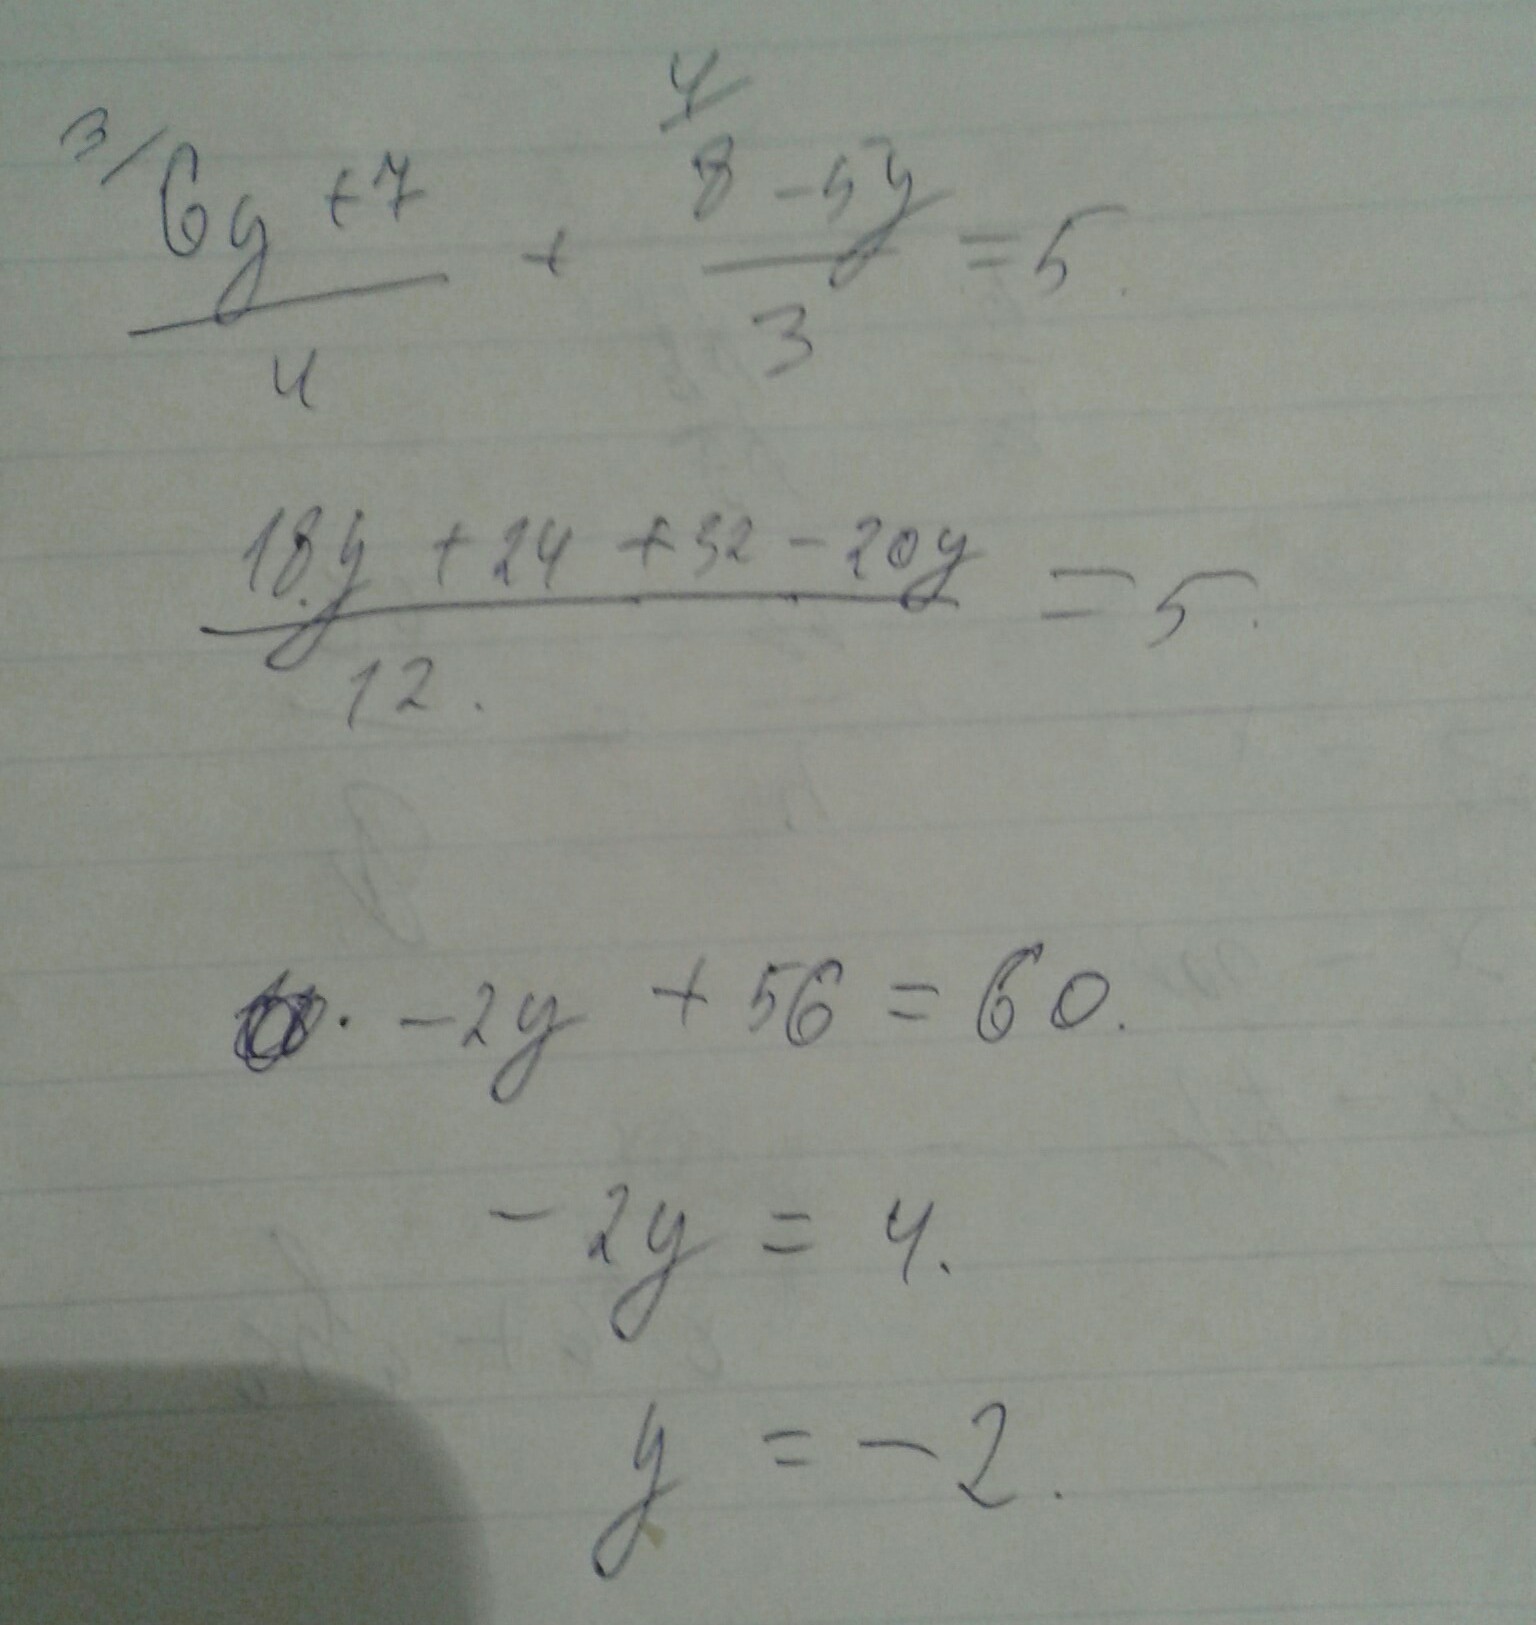 3/ 6y + 7 / 4 + 4/ 8 - 5y / 3 = 5.
18y + 24 + 32 - 20y / 12. = 5.
-2y + 56 = 60.
-2y = 4.
y = -2.